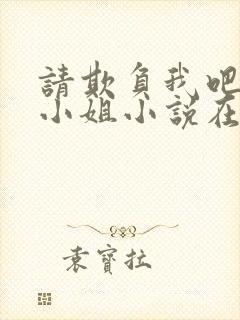 請欺負我吧
小姐小說在
袁寶拉